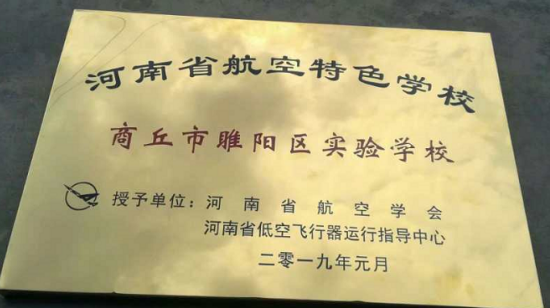 河南省航空特色学校
商丘市睢阳区实验学校
授予单位：河南省航空学会
河南省低空飞行器运行指导中心
二零一九年元月